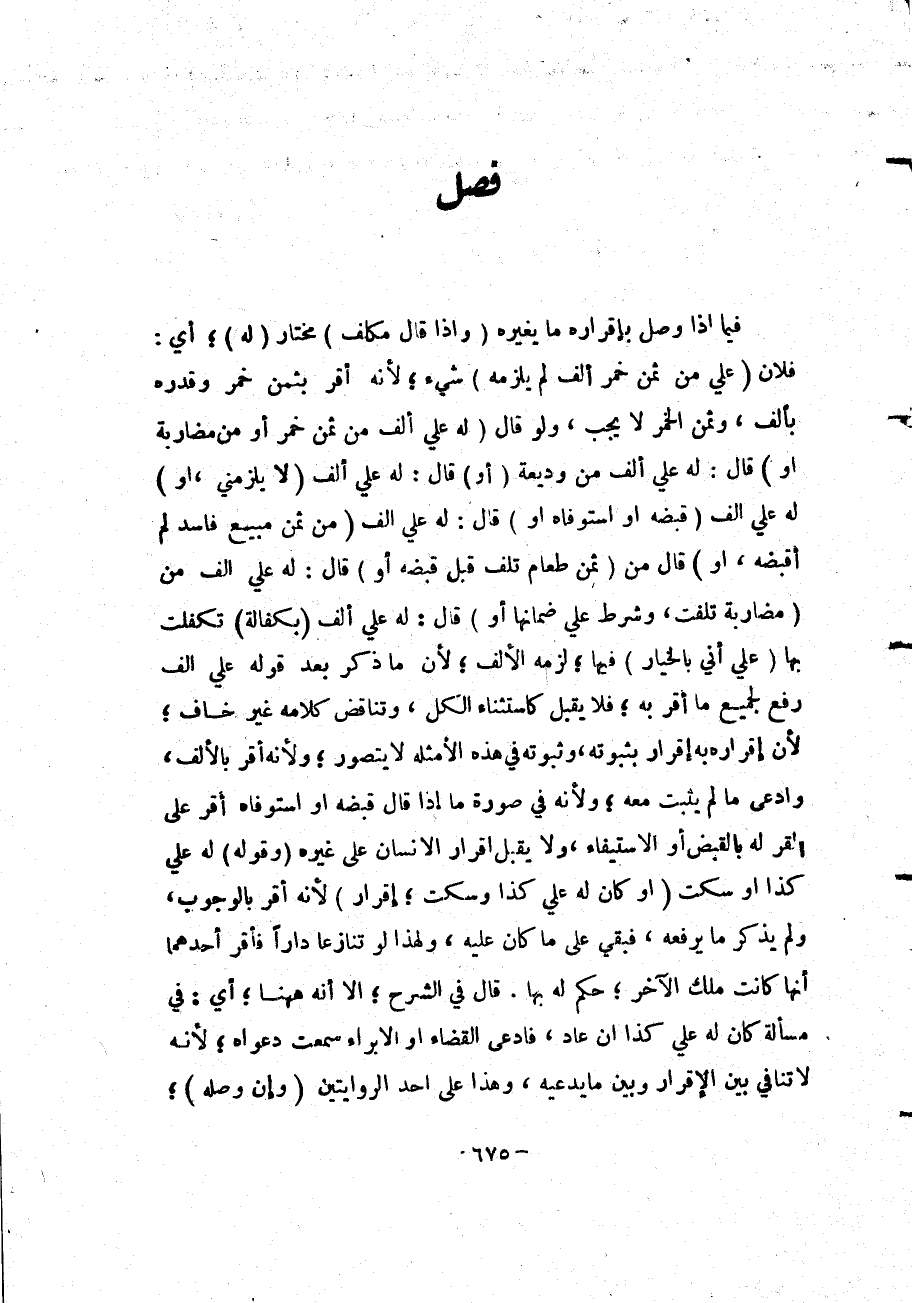 فصل
فيما اذا وصل بإقراره ما يغيره ( واذا قال مكلف ) مختار ( له ) ؛ أي :
فلان ( علي من ثمن خمر ألف لم يلزمه ) شيء ؛ لأنه أقر بثمن خمر وقدره
بألف ، وثمن الخمر لا يجب ، ولو قال ( له علي ألف من ثمن خمر أو من مضاربة
او ) قال : له علي ألف من وديعة ( أو ) قال : له علي ألف ( لا يلزمني ، او )
له علي الف ( قبضه او استوفاه او ) قال : له علي الف ( من ثمن مبيع فاسد لم
أقبضه ، او ) قال من ( ثمن طعام تلف قبل قبضه أو ) قال : له علي الف من
( مضاربة تلفت ، وشرط علي ضمانها أو ) قال : له علي ألف (بكفالة) تكفلت
بها ( علي أني بالخيار ) فيها ؛ لزمه الألف ؛ لأن ما ذكر بعد قوله علي الف
رفع لجميع ما أقر به ؛ فلا يقبل كاستثناء الكل ، وتناقض كلامه غير خاف ؛
لأن إقراره به إقرار بثبوته ، وثبوته في هذه الأمثله لا يتصور ؛ ولأنه أقر بالألف ،
وادعى ما لم يثبت معه ؛ ولأنه في صورة ما إذا قال قبضه او استوفاه أقر على
المقر له بالقبض أو الاستيفاء ، ولا يقبل اقرار الانسان على غيره (وقوله) له علي
كذا او سكت ( او كان له علي كذا وسكت ؛ إقرار ) لأنه أقر بالوجوب ،
ولم يذكر ما يرفعه ، فبقي على ما كان عليه ، ولهذا لو تنازعا داراً فأقر أحدهما
أنها كانت ملك الآخر ؛ حكم له بها . قال في الشرح ؛ الا أنه ههنا ؛ أي : في
مسألة كان له علي كذا ان عاد ، فادعى القضاء او الابراء سمعت دعواه ؛ لأنه
لا تنافي بين الإقرار وبين ما يدعيه ، وهذا على احد الروايتين ( وإن وصله ) ؛
- ٦٧٥ -